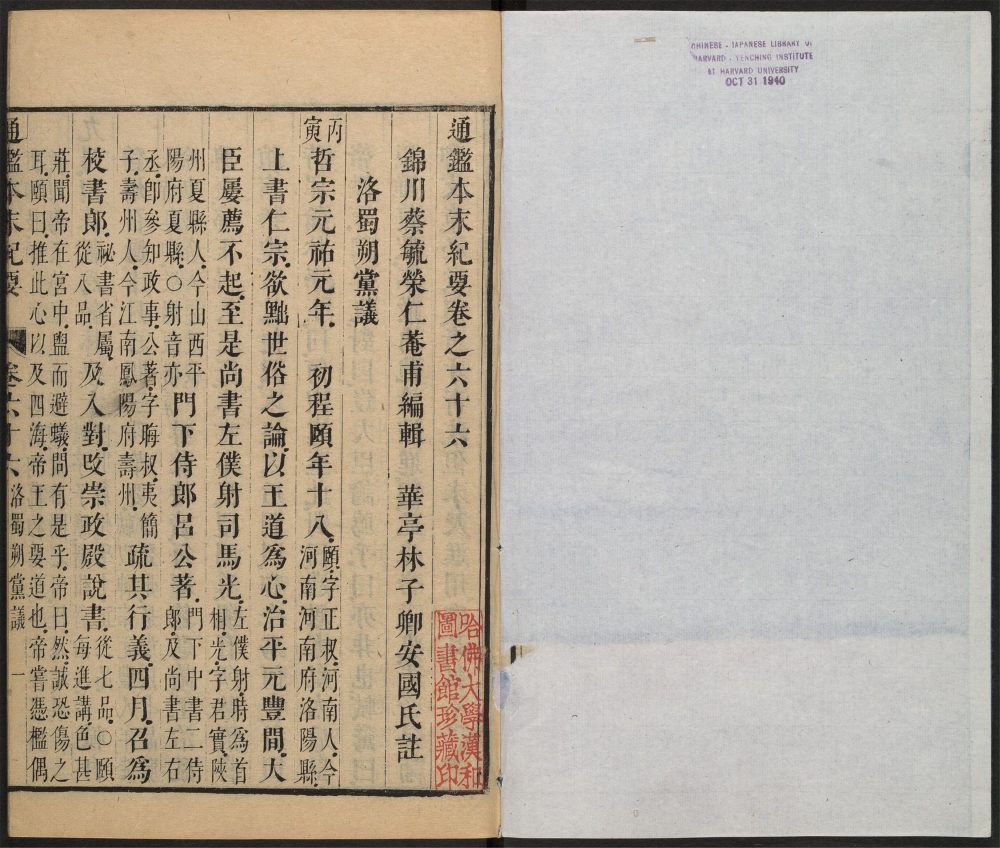 通鑑本末紀要卷之六十六
錦川蔡毓榮仁菴甫編輯　華亭林子卿安國氏註
洛蜀朔黨議
丙寅哲宗元祐元年．初程頤年十八．頤．字正叔．河南人．今河南河南府洛陽縣．
上書仁宗．欲黜世俗之論．以王道爲心．治平元豐間．大
臣屢薦不起．至是尚書左僕射司馬光．左僕射．時爲首相．光．字君實．陝
州夏縣人．今山西平陽府夏縣．○射音亦．門下侍郎呂公著．門下中書二侍郎．及尚書左右
丞．卽參知政事．公著．字晦叔．夷簡子．壽州人．今江南鳳陽府壽州．疏其行義．四月．召爲
校書郎．祕書省屬．從八品．及入對．改崇政殿說書．從七品．○頤每進講．色甚
莊．聞帝在宮中．盥而避蟻．問有是乎．帝曰．然．誠恐傷之
耳．頤曰．推此心以及四海．帝王之要道也．帝嘗憑檻偶
通鑑本末紀要　卷六十六　洛蜀朔黨議　一
哈佛大學漢和
圖書館珍藏印
CHINESE - JAPANESE LIBRARY OF
HARVARD - YENCHING INSTITUTE
AT HARVARD UNIVERSITY
OCT 31 1940